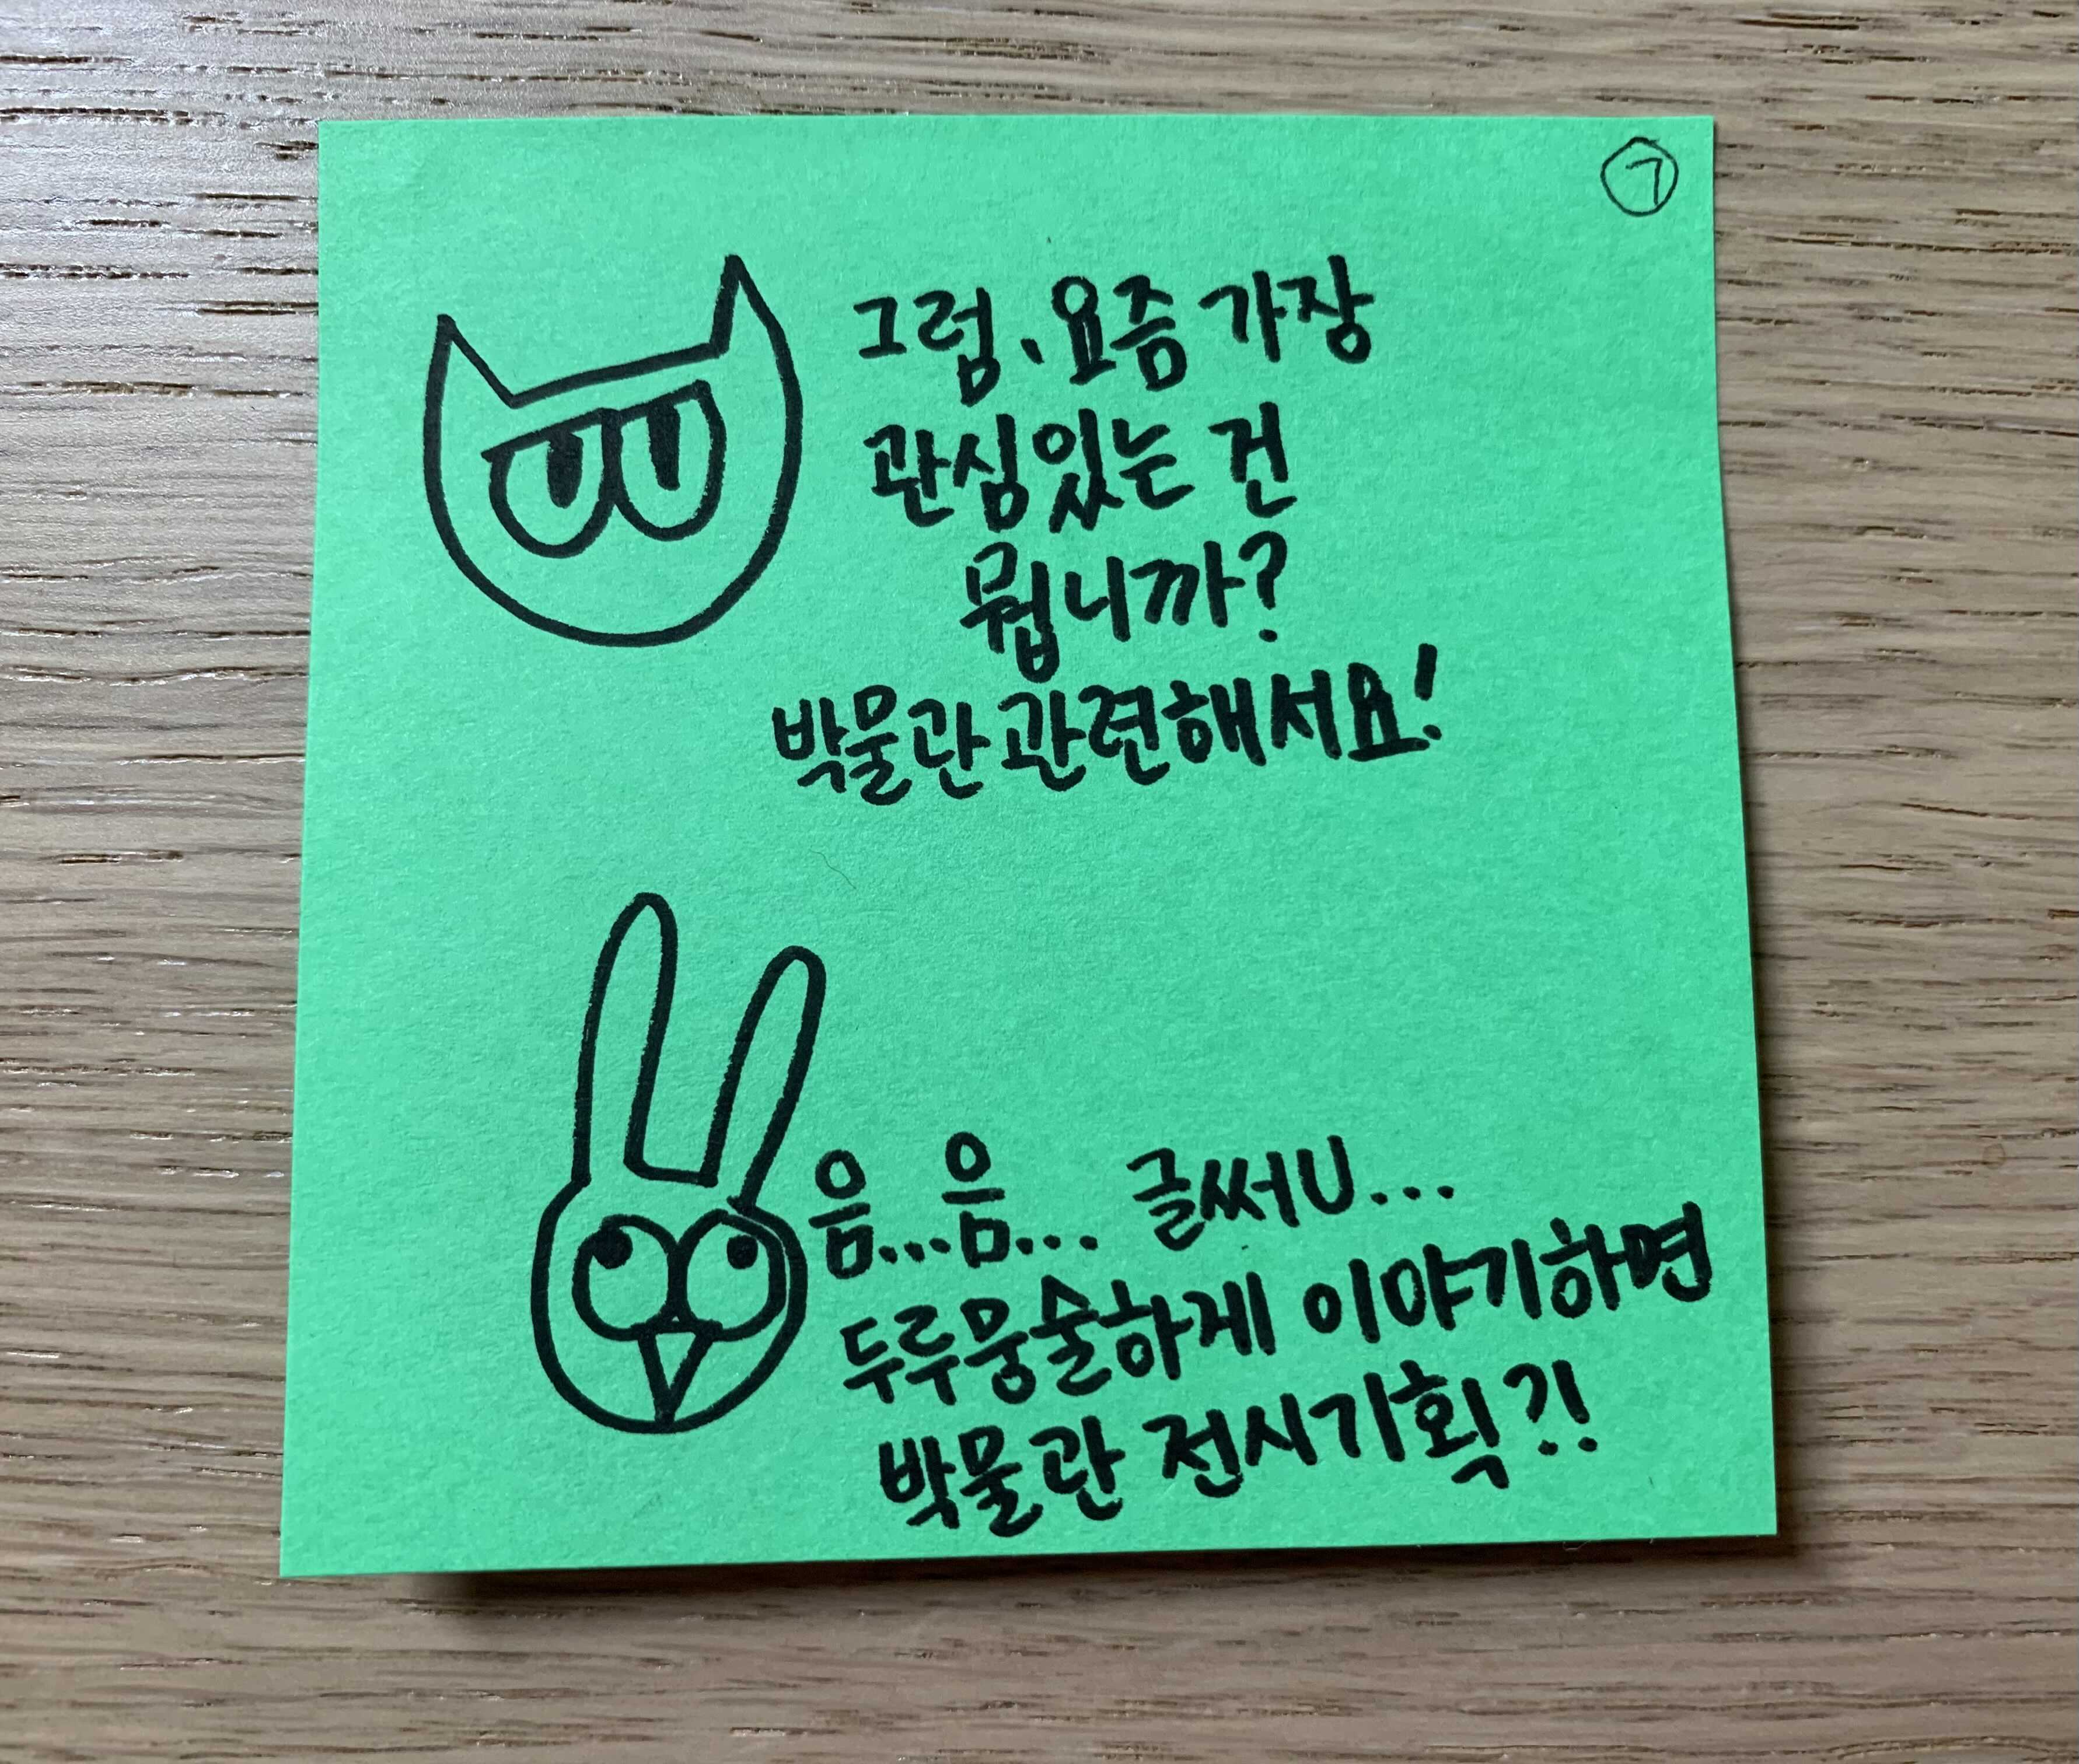 ⑦
그럼、요즘 가장
관심있는 건
뭡니까?
박물관관련해서요!
음...음... 글써U...
두루뭉술하게 이야기하면
박물관 전시기획?!